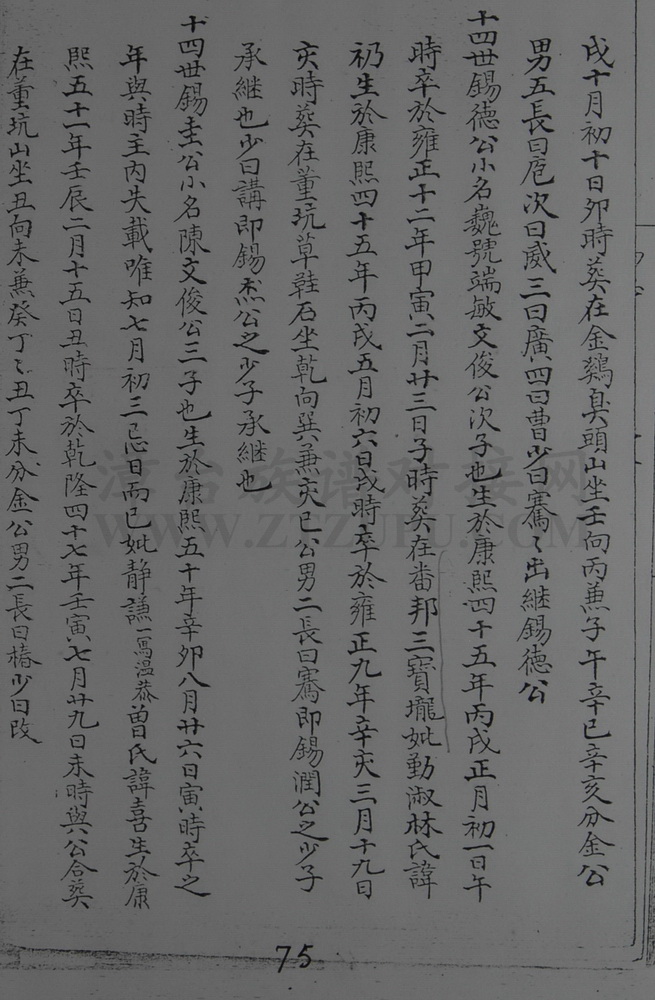 戌十月初十日卯時葬在金鷄奠頭山坐壬向丙兼子午辛巳辛亥分金公
男五長曰庖次曰威三曰廣四曰曹少曰騫〻出継錫德公
十四世錫德公小名巍號端敏文俊公次子也生於康熙四十五年丙戌正月初一日午
時卒於雍正十二年甲寅二月廿三日子時葬在番邦三寶壠妣勤淑林氏諱
礽生於康熙四十五年丙戌五月初六日戌時卒於雍正九年辛亥三月十九日
亥時葬在董坑草鞋石坐乾向巽兼亥巳公男二長曰騫即錫潤公之少子
承継也少曰講即錫杰公之少子承継也
十四世錫圭公小名陳文俊公三子也生於康熙五十年辛卯八月廿六日寅時卒之
年與時主内失載唯知七月初三忌日而已妣静謙一寫温恭曾氏諱喜生於康
熙五十一年壬辰二月十五日丑時卒於乾隆四十七年壬寅七月廿九日未時與公合葬
在董坑山坐丑向未兼癸丁〻丑丁未分金公男二長曰椿少曰改
75
漳台族谱对接网
WWW.ZTZUPU.COM